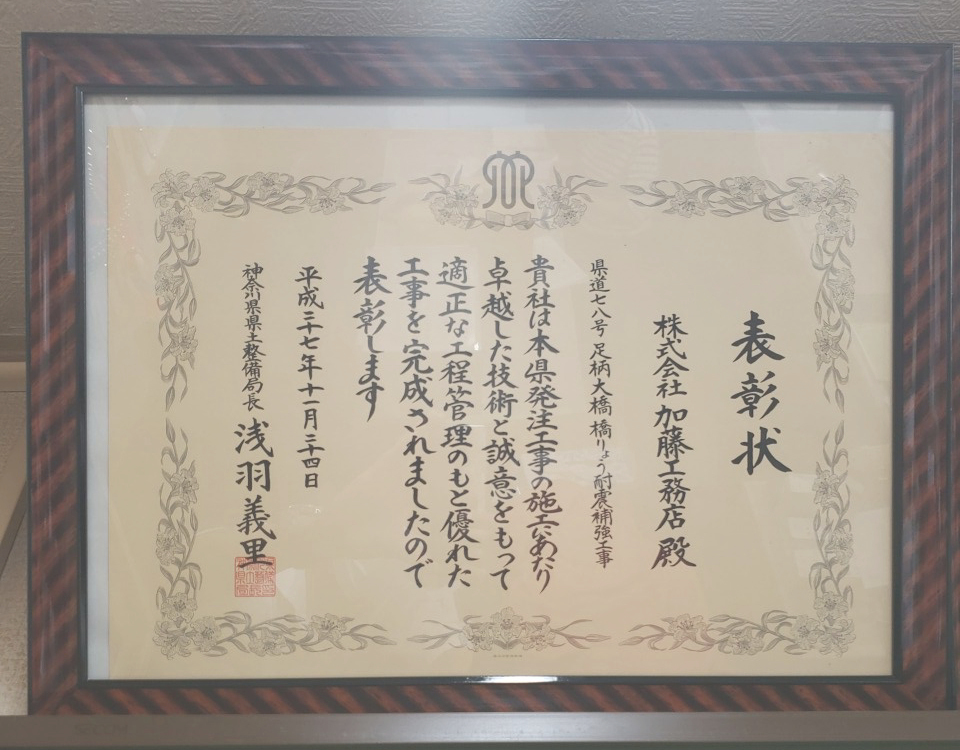 表彰状
株式会社 加藤工務店 殿
県道七八号 足柄大橋 橋りょう耐震補強工事
貴社は本県発注工事の施工にあたり
卓越した技術と誠意をもって
適正な工程管理のもと優れた
工事を完成されましたので
表彰します
平成二十七年十一月二十四日
神奈川県県土整備局長 浅羽義里